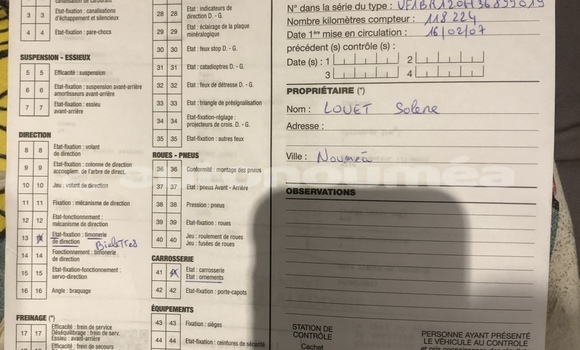 d'échappement et silencieux
4 4 Etat-fixation : pare-chocs
SUSPENSION - ESSIEUX
5 5 Efficacité : suspension
6 6 Etat-fixation : suspension avant-arrière
amortisseurs avant-arrière
7 7 Etat-fixation : essieu
avant-arrière
DIRECTION
8 8 Etat-fixation : volant
de direction
9 9 Etat-fixation : colonne de direction
accouplem. de l'arbre de direct.
10 10 Jeu : volant de direction
11 11 Fixation : mécanisme de direction
12 12 Etat-fonctionnement :
mécanisme de direction
13 Etat-fixation : timonerie
de direction
14 14 Fonctionnement : timonerie
de direction
15 15 Etat-fixation-fonctionnement :
servo-direction
16 16 Angle : braquage
FREINAGE (*)
17 17 Efficacité : frein de service
Déséquilibrage : frein de serv.
Essieu : avant-arrière
Efficacité : frein de secours
28 28 Etat : indicateurs de
direction D. - G.
29 29 Etat : éclairage de la plaque
minéralogique
30 30 Etat : feux stop D. - G.
31 31 Etat : catadioptres D. - G.
32 32 Etat : feux de détresse D. - G.
33 33 Etat : triangle de présignalisation
34 34 Etat-fixation-réglage :
projecteurs de crois. D. - G.
35 35 Etat-fixation : autres feux
ROUES - PNEUS
36 36 Conformité : montage des pneus
37 37 Etat : pneus Avant - Arrière
38 38 Pression : pneus
39 39 Etat-fixation : roues
40 40 Jeu : roulement de roues
Jeu : fusées de roues
CARROSSERIE
41 Etat : carrosserie
Etat : ornements
42 42 Etat-fixation : porte-capots
ÉQUIPEMENTS
43 43 Fixation : sièges
44 44 Etat-fixation : ceintures de sécurité
N° dans la série du type : VF1BR120H36899019
Nombre kilomètres compteur : 118 224
Date 1ère mise en circulation : 16/02/07
précédent(s) contrôle(s) :
Date(s) : 1 2
3 4
PROPRIÉTAIRE (*)
Nom : LOUET Solene
Adresse :
Ville : Nouméa
OBSERVATIONS
STATION DE
CONTRÔLE
Cachet
PERSONNE AYANT PRÉSENTÉ
LE VÉHICULE AU CONTRÔLE